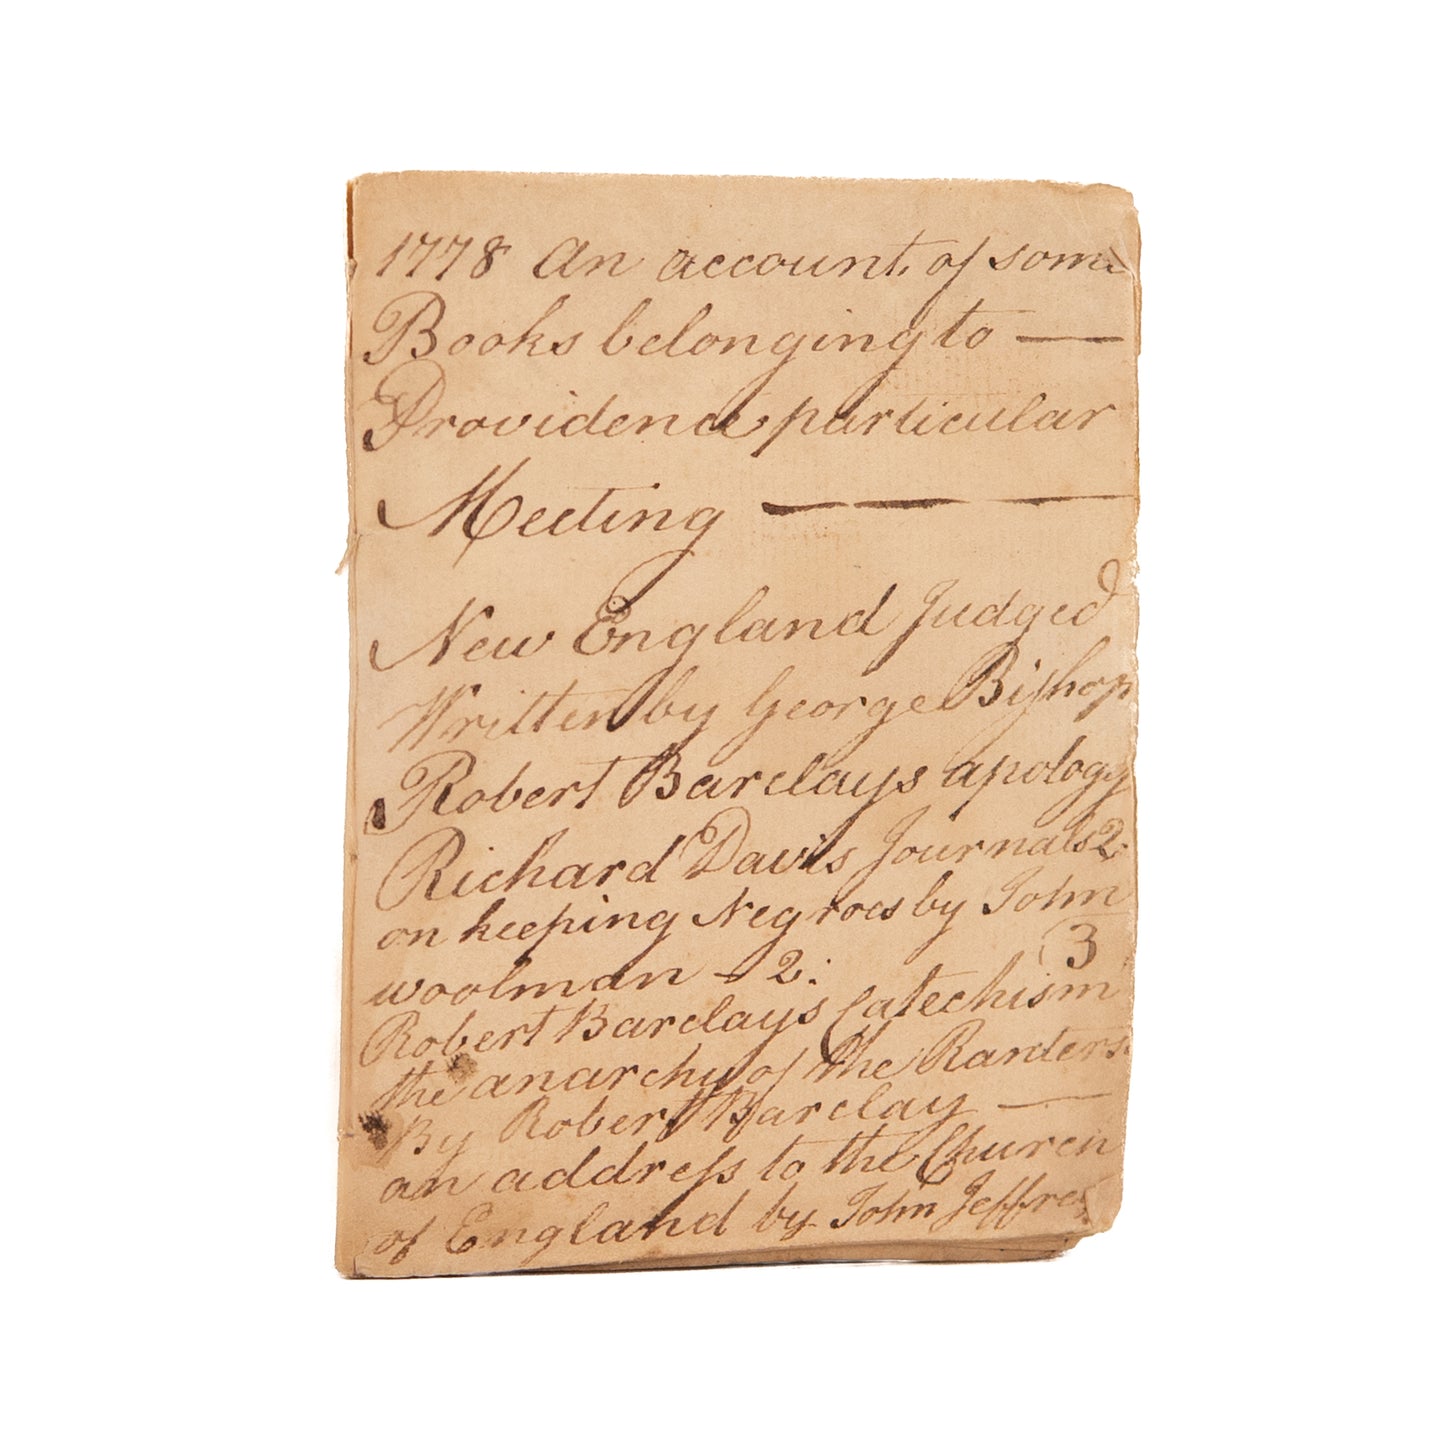 1778 An account, of some
Books belonging to —
Providence particular
Meeting — — —
New England Judged
Written by George Bishop
Robert Barclays apology
Richard Davis Journals 2:
on keeping Negroes by John
woolman - 2:
3
Robert Barclays Catechism
the anarchy of the Ranters
By Robert Barclay —
an address to the Church
of England by John Jeffrey